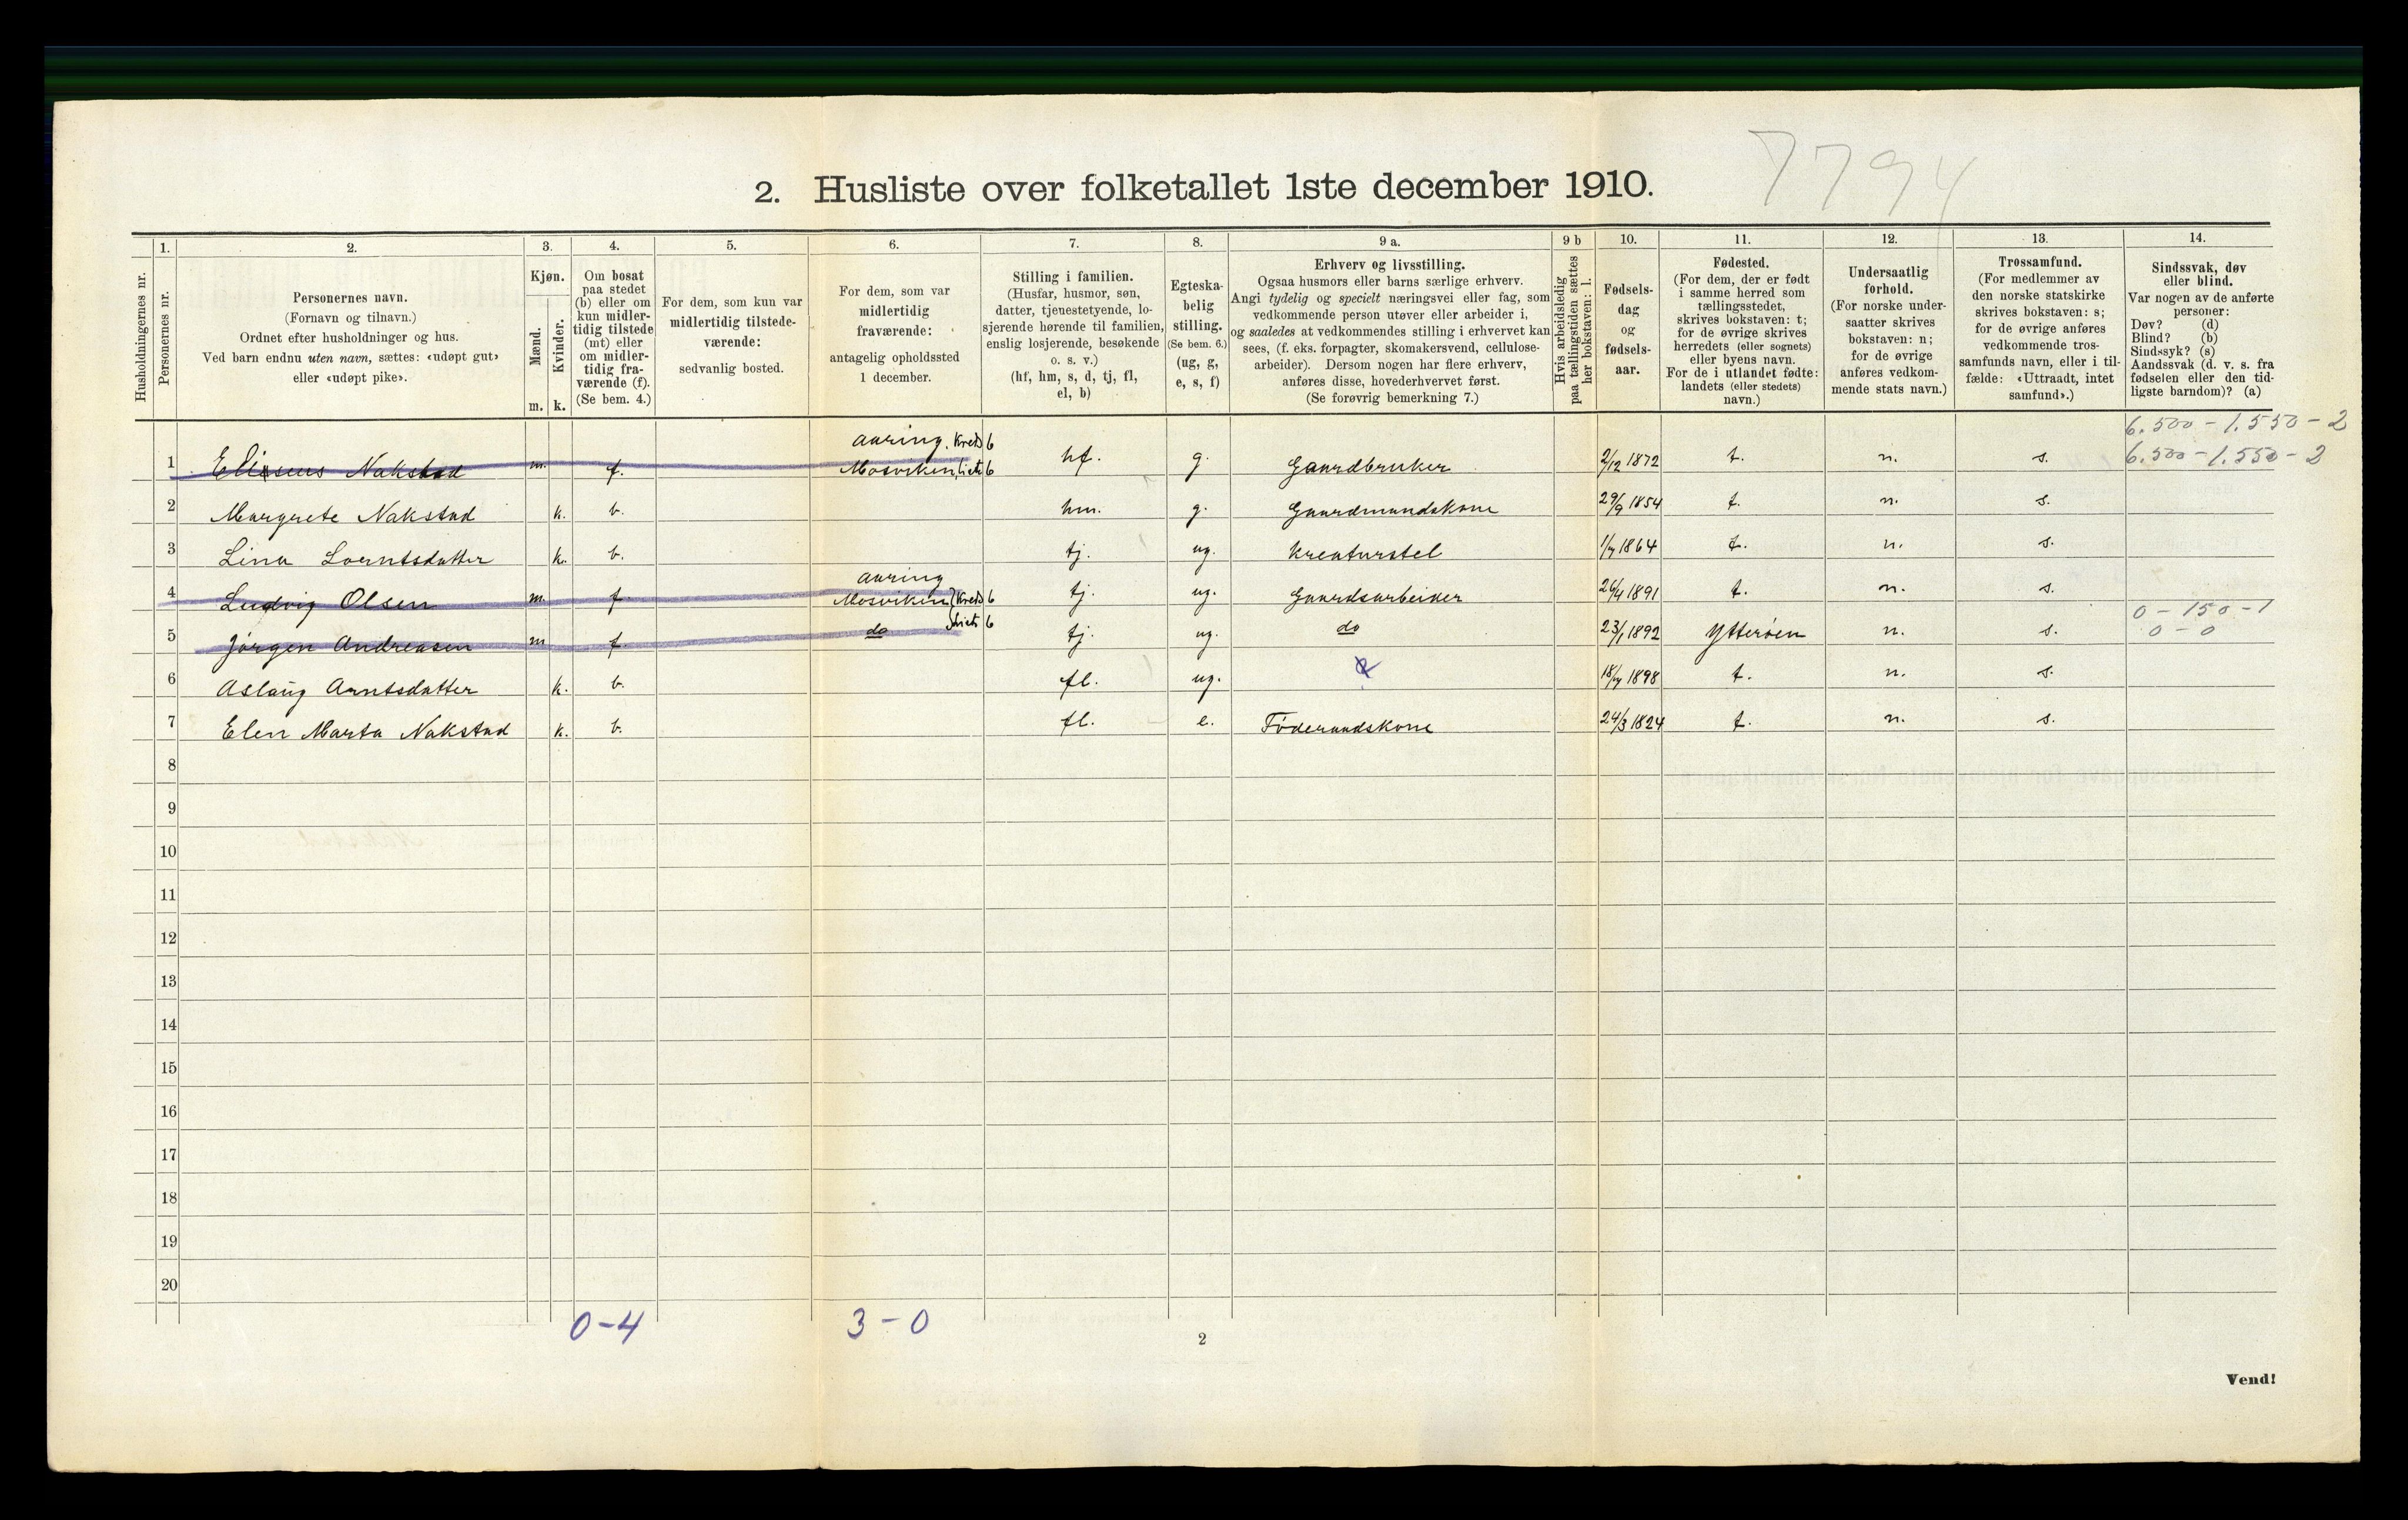 7794
2. Husliste over folketallet 1ste december 1910.
1. 2. 3. 4. 5. 6. 7. 8. 9 a. 9 b 10. 11. 12. 13. 14.
Husholdningernes nr.
Personernes nr.
Personernes navn.
(Fornavn og tilnavn.)
Ordnet efter husholdninger og hus.
Ved barn endnu uten navn, sættes: «udøpt gut»
eller «udøpt pike».
Kjøn.
Mænd.
Kvinder.
m. k.
Om bosat
paa stedet
(b) eller om
kun midler-
tidig tilstede
(mt) eller
om midler-
tidig fra-
værende (f).
(Se bem. 4.)
For dem, som kun var
midlertidig tilstede-
værende:
sedvanlig bosted.
For dem, som var
midlertidig
fraværende:
antagelig opholdssted
1 december.
Stilling i familien.
(Husfar, husmor, søn,
datter, tjenestetyende, lo-
sjerende hørende til familien,
enslig losjerende, besøkende
o. s. v.)
(hf, hm, s, d, tj, fl,
el, b)
Egteska-
belig
stilling.
(Se bem. 6.)
(ug, g,
e, s, f)
Erhverv og livsstilling.
Ogsaa husmors eller barns særlige erhverv.
Angi tydelig og specielt næringsvei eller fag, som
vedkommende person utøver eller arbeider i,
og saaledes at vedkommendes stilling i erhvervet kan
sees, (f. eks. forpagter, skomakersvend, cellulose-
arbeider). Dersom nogen har flere erhverv,
anføres disse, hovederhvervet først.
(Se forøvrig bemerkning 7.)
Hvis arbeidsledig
paa tællingstiden sættes
her bokstaven: l.
Fødsels-
dag
og
fødsels-
aar.
Fødested.
(For dem, der er født
i samme herred som
tællingsstedet,
skrives bokstaven: t;
for de øvrige skrives
herredets (eller sognets)
eller byens navn.
For de i utlandet fødte:
landets (eller stedets)
navn.)
Undersaatlig
forhold.
(For norske under-
saatter skrives
bokstaven: n;
for de øvrige
anføres vedkom-
mende stats navn.)
Trossamfund.
(For medlemmer av
den norske statskirke
skrives bokstaven: s;
for de øvrige anføres
vedkommende tros-
samfunds navn, eller i til-
fælde: «Uttraadt, intet
samfund».)
Sindssvak, døv
eller blind.
Var nogen av de anførte
personer:
Døv? (d)
Blind? (b)
Sindssyk? (s)
Aandssvak (d. v. s. fra
fødselen eller den tid-
ligste barndom)? (a)
Aaring. Kreds 6 6.500 - 1.550 - 2
1 Elisæus Nakstad m. f. Mosviken, 6 hf. g. Gaardbruker 2/12 1872 t. n. s. 6.500 - 1.550 - 2
2 Margrete Nakstad k. b. hm. g. Gaardmandskone 29/9 1854 t. n. s.
3 Lina Lorntsdatter k. b. tj. ug. Kreaturstel 1/7 1864 t. n. s.
Aaring
4 Ludvig Olsen m. f. Mosviken Kreds 6 tj. ug. Gaardsarbeider 26/4 1891 t. n. s.
0 - 150 - 1
5 Jörgen Andreasen m f. do 6 tj. ug. do 23/1 1892 Ytterøen n. s. 0 - 0
6 Aslaug Arntsdatter k. b. fl. ug. 18/7 1898 t. n. s.
7 Elen Marta Nakstad k. b. fl. e. Föderaadskone 24/3 1824 t. n. s.
8
9
10
11
12
13
14
15
16
17
18
19
20
0-4 3-0
2
Vend!